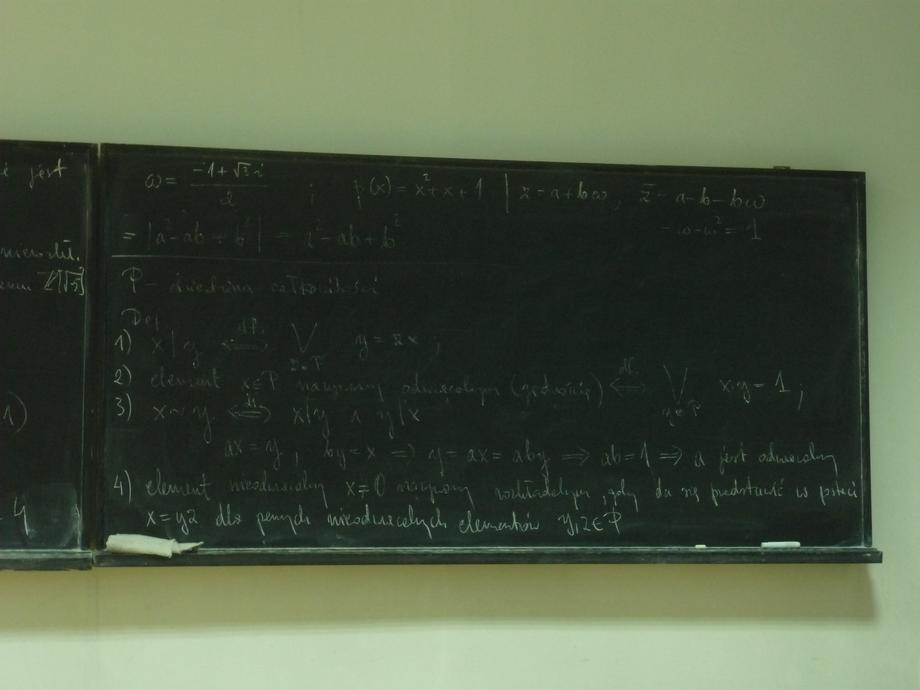 jest
nierozkł.
Z[√5]
1)
4
ω = (-1+√3 i)/2 ; p(x) = x²+x+1 | z = a+bω, z̄ = a-b-bω
-ω-ω² = 1
= |a²-ab+b²| = a²-ab+b²
P - dziedzina całkowitości
Def.
1) x|y ⇔ df. ⋁ z∈P y = zx ;
2) element x∈P nazywamy odwracalnym (jednością) ⇔ df. ⋁ y∈P x·y = 1 ;
3) x ~ y ⇔ df. x|y ∧ y|x
ax = y , by = x ⇒ y = ax = aby ⇒ ab = 1 ⇒ a jest odwracalny
4) element nieodwracalny x ≠ 0 nazywamy rozkładalnym, gdy da się przedstawić w postaci
x = yz dla pewnych nieodwracalnych elementów y,z∈P